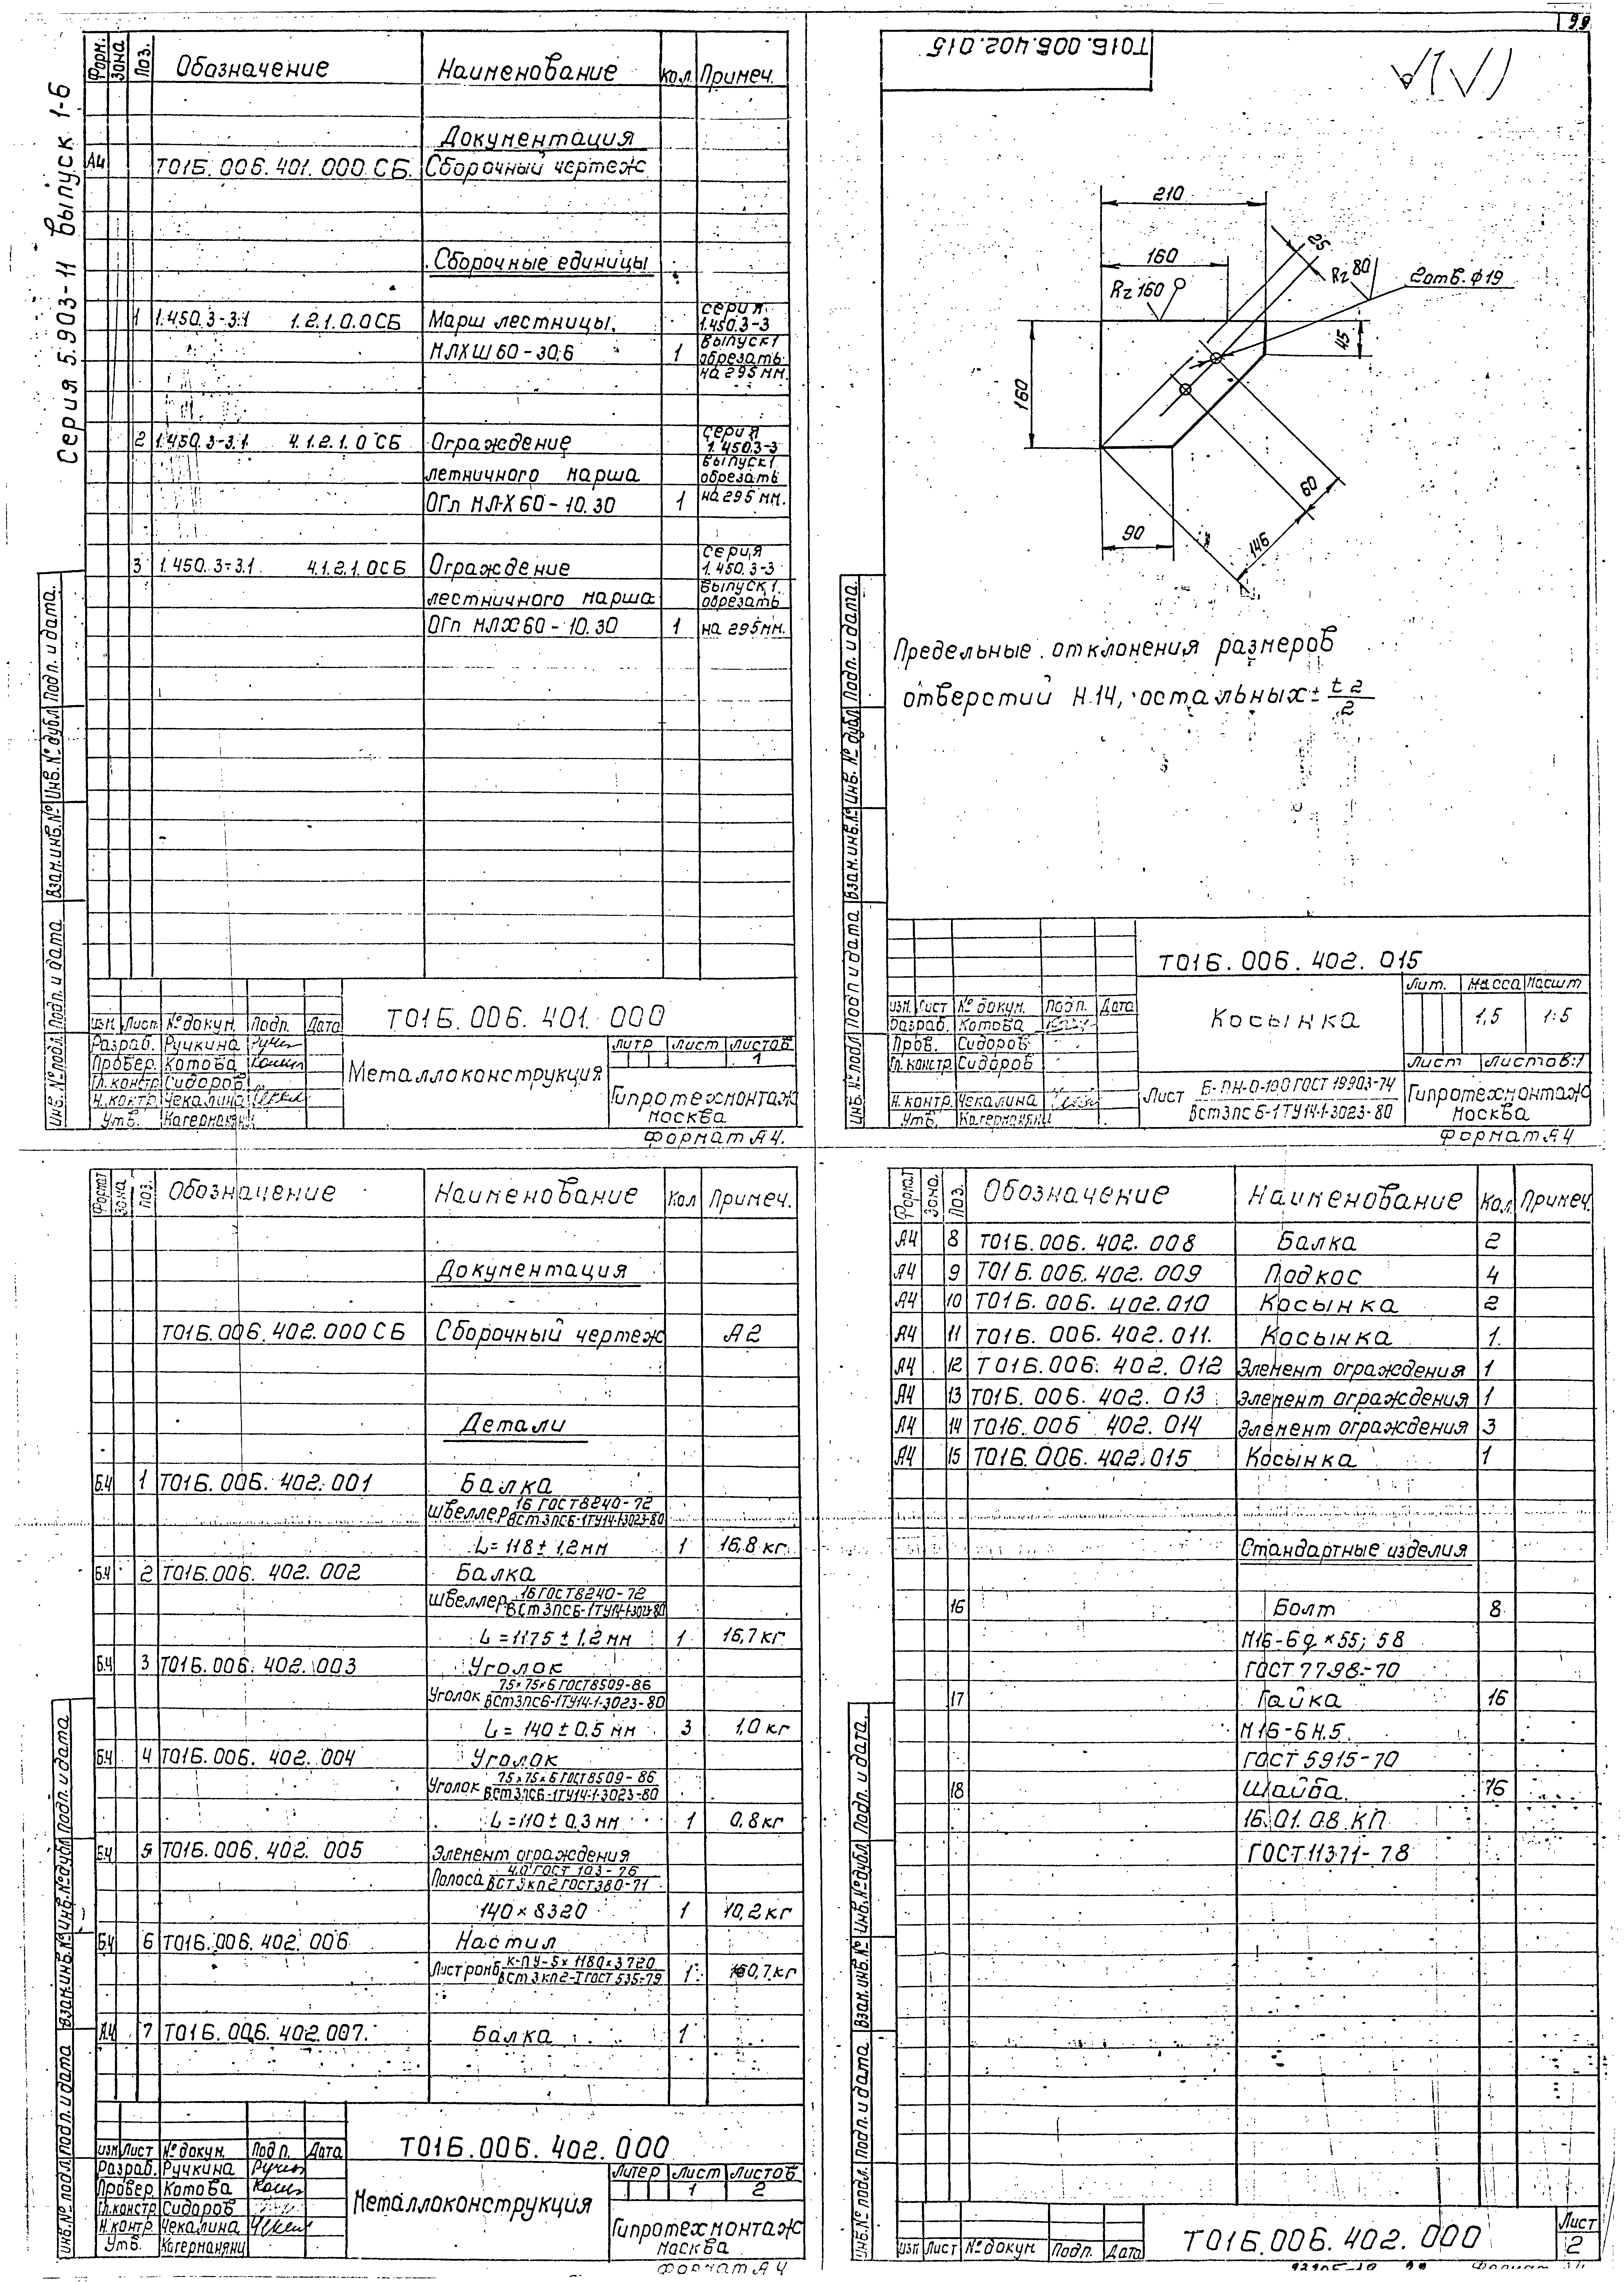 99
Серия 5.903-11 выпуск 1-6
Форм. Зона Поз. Обозначение Наименование Кол. Примеч.
Документация
А4 Т01Б.006.401.000 СБ. Сборочный чертеж
Сборочные единицы
1 1.450.3-3.1 1.2.1.0.0СБ Марш лестницы. серия 1.450.3-3
МЛХШ 60-30.6 1 выпуск 1 обрезать
на 295 мм.
2 1.450.3-3.1 4.1.2.1.0 СБ Ограждение серия 1.450.3-3
летничного марша выпуск 1 обрезать
ОГп МЛХ 60-10.30 1 на 295 мм.
3 1.450.3-3.1 4.1.2.1.0СБ Ограждение серия 1.450.3-3
лестничного марша выпуск 1. обрезать
ОГп МЛХ60-10.30 1 на 295мм.
Инв.№ подл. Подп. и дата Взам.инв.№ Инв.№ дубл Подп. и дата.
Т01Б.006.401.000
Изм. Лист №докум. Подп. Дата
Разраб. Ручкина
Провер. Котова
Гл.констр Сидоров
Н.контр Чекалина
Утв.
Металлоконструкция
Литр Лист Листов
1
Гипротехмонтаж
Москва
Формат А4.
Т01Б.006.402.015
210
160
25
Rz 160
Rz 80
2отв. ф19
45
160
60
146
90
Предельные отклонения размеров
отверстий Н.14, остальных ± t 2/2
Инв.№ подл Подп и дата Взам.инв.№ Инв. № дубл Подп. и дата.
Т01Б.006.402.015
Изм. Лист №докум. Подп. Дата
Разраб. Котова
Пров. Сидоров
Гл.констр. Сидоров
Н.контр. Чекалина
Утв.
Косынка
Лит. Масса Масшт
1,5 1:5
Лист Листов:1
Лист Б-ПН-О-100 ГОСТ 19903-74
ВСт3пс Б-1 ТУ14-1-3023-80
Гипротехмонтаж
Москва
Формат А4
Формат Зона Поз. Обозначение Наименование Кол Примеч.
Документация
Т01Б.006.402.000 СБ Сборочный чертеж А2
Детали
Б.Ч 1 Т01Б.006.402.001 Балка
Швеллер 16 ГОСТ8240-72
ВСт3псБ-1ТУ14-1-3023-80
L=118±1,2мм 1 16,8 кг.
Б.Ч 2 Т01Б.006.402.002 Балка
Швеллер 16 ГОСТ8240-72
ВСт3псБ-1ТУ14-1-3023-80
L=1175±1,2 мм 1 16,7кг
Б.Ч 3 Т01Б.006.402.003 Уголок
Уголок 75×75×6 ГОСТ8509-86
ВСт3псБ-1ТУ14-1-3023-80
L=140±0.5 мм 3 1,0 кг
Б.Ч 4 Т01Б.006.402.004 Уголок
Уголок 75×75×6 ГОСТ8509-86
ВСт3псБ-1ТУ14-1-3023-80
L=110±0,3 мм 1 0,8кг
Б.Ч 5 Т01Б.006.402.005 Элемент ограждения
Полоса 4.0 ГОСТ 103-76
ВСТ3кп2 ГОСТ380-71
140×8320 1 10,2кг
Б.Ч 6 Т01Б.006.402.006 Настил
Лист ромб. К-ПУ-5×1180×3720
ВСт3кп2-I ГОСТ 535-79 1 160,7кг
А4 7 Т01Б.006.402.007. Балка 1
Инв.№ подл. Подп. и дата Взам.инв.№ Инв.№дубл Подп. и дата
Т01Б.006.402.000
Изм Лист №докум. Подп. Дата
Разраб. Ручкина
Провер Котова
Гл.констр Сидоров
Н.контр. Чекалина
Утв.
Металлоконструкция
Литер Лист Листов
1 2
Гипротехмонтаж
Москва
Формат А4
Формат Зона. Поз. Обозначение Наименование Кол. Примеч.
А4 8 Т01Б.006.402.008 Балка 2
А4 9 Т01Б.006.402.009 Подкос 4
А4 10 Т01Б.006.402.010 Косынка 2
А4 11 Т01Б.006.402.011. Косынка 1.
А4 12 Т01Б.006.402.012 Элемент ограждения 1
А4 13 Т01Б.006.402.013 Элемент ограждения 1
А4 14 Т01Б.006 402.014 Элемент ограждения 3
А4 15 Т01Б.006.402.015 Косынка 1
Стандартные изделия
16 Болт 8
М16-6g×55; 58
ГОСТ 7798-70
17 Гайка 16
М16-6Н.5.
ГОСТ 5915-70
18 Шайба 16
16.01.08.КП
ГОСТ11371-78
Инв.№ подл. Подп. и дата. Взам.инв.№ Инв.№дубл Подп. и дата.
Изм Лист №докум Подп. Дата
Т01Б.006.402.000
Лист
2